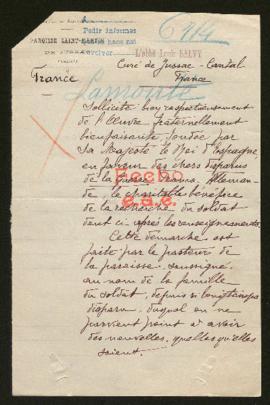 Pedir informes
L'abbé Louis SALVY
PAROISSE SAINT-MARTIN
DE JUSSAC
Curé de Jussac - Cantal
France
France
Lamonte
Sollicite bien respectueusement
de l'Œuvre fraternellement
bienfaisante fondée par
Sa Majesté le Roi d'Espagne
en faveur des chers disparus
de la guerre franco-allemande
Hecho
le charitable bénéfice
de la recherche du soldat
dont ci-après les renseignements.
Cette démarche est
faite par le pasteur de
la paroisse, soussigné,
au nom de la famille
du soldat, depuis si longtemps
disparu, duquel on ne
parvient point à avoir
des nouvelles, quelles qu'elles
soient.